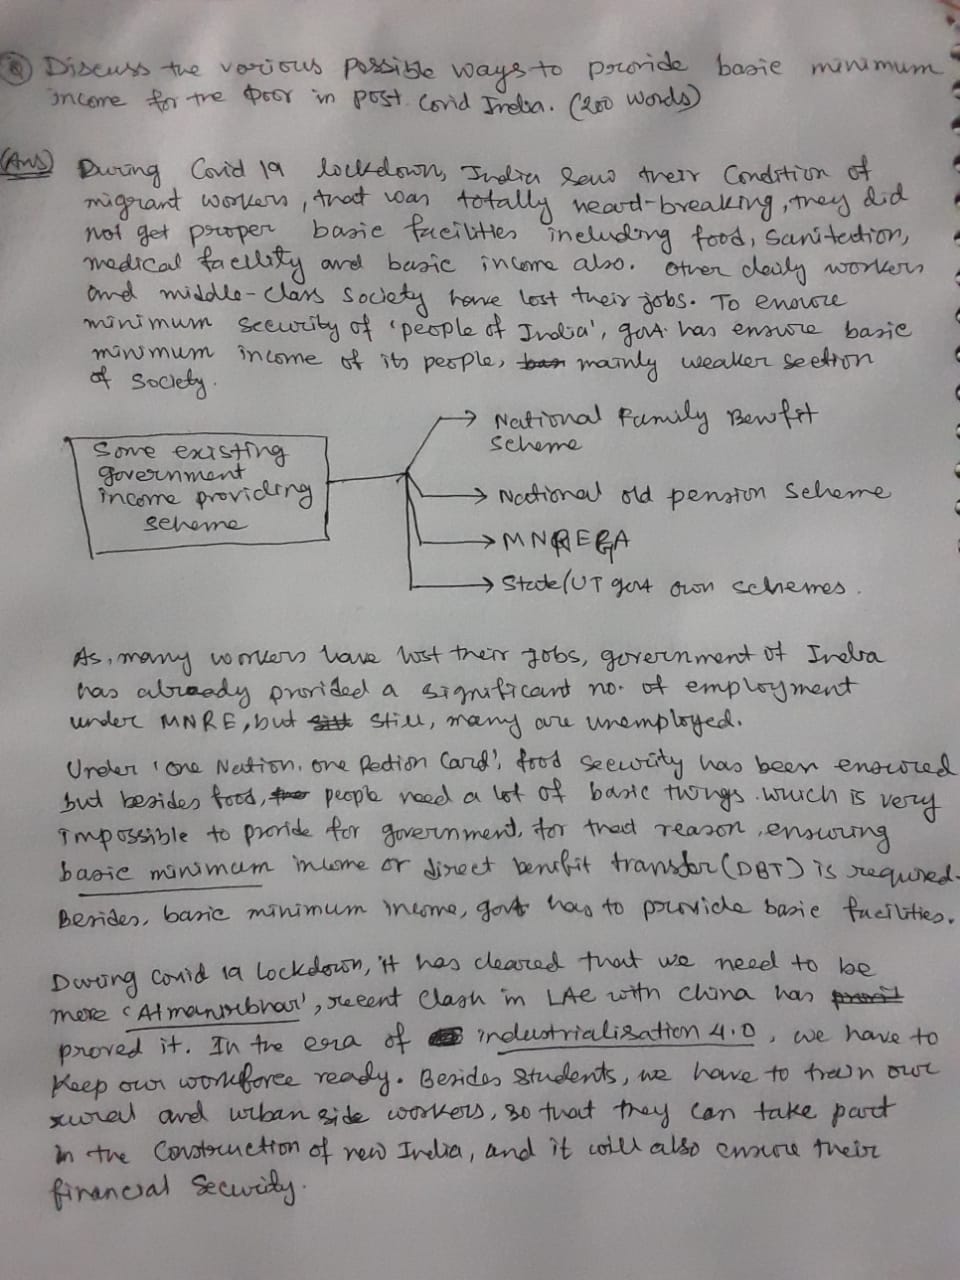 Q Discuss the various possible ways to provide basic minimum
income for the poor in post covid India. (200 words)
(Ans) During Covid 19 lockdown, India saw their Condition of
migrant workers, that was totally heart-breaking, they did
not get proper basic facilities including food, sanitation,
medical facility and basic income also. Other daily workers
and middle-class society have lost their jobs. To ensure
minimum security of 'people of India', govt. has ensure basic
minimum income of its people, mainly weaker section
of society.
Some existing
government
income providing
scheme
→ National Family Benefit
scheme
→ National old pension scheme
→ MNREGA
→ State/UT govt own schemes.
As, many workers have lost their jobs, government of India
has already provided a significant no. of employment
under MNRE, but still, many are unemployed.
Under 'One Nation, one Ration Card', food security has been ensured
but besides food, people need a lot of basic things which is very
impossible to provide for government, for that reason, ensuring
basic minimum income or direct benifit transfer (DBT) is required.
Besides, basic minimum income, govt has to provide basic facilities.
During covid 19 lockdown, it has cleared that we need to be
more 'Atmanirbhar', recent clash in LAC with china has
proved it. In the era of industrialisation 4.0, we have to
keep our workforce ready. Besides students, we have to train our
rural and urban side workers, so that they can take part
in the Construction of new India, and it will also ensure their
financial security.